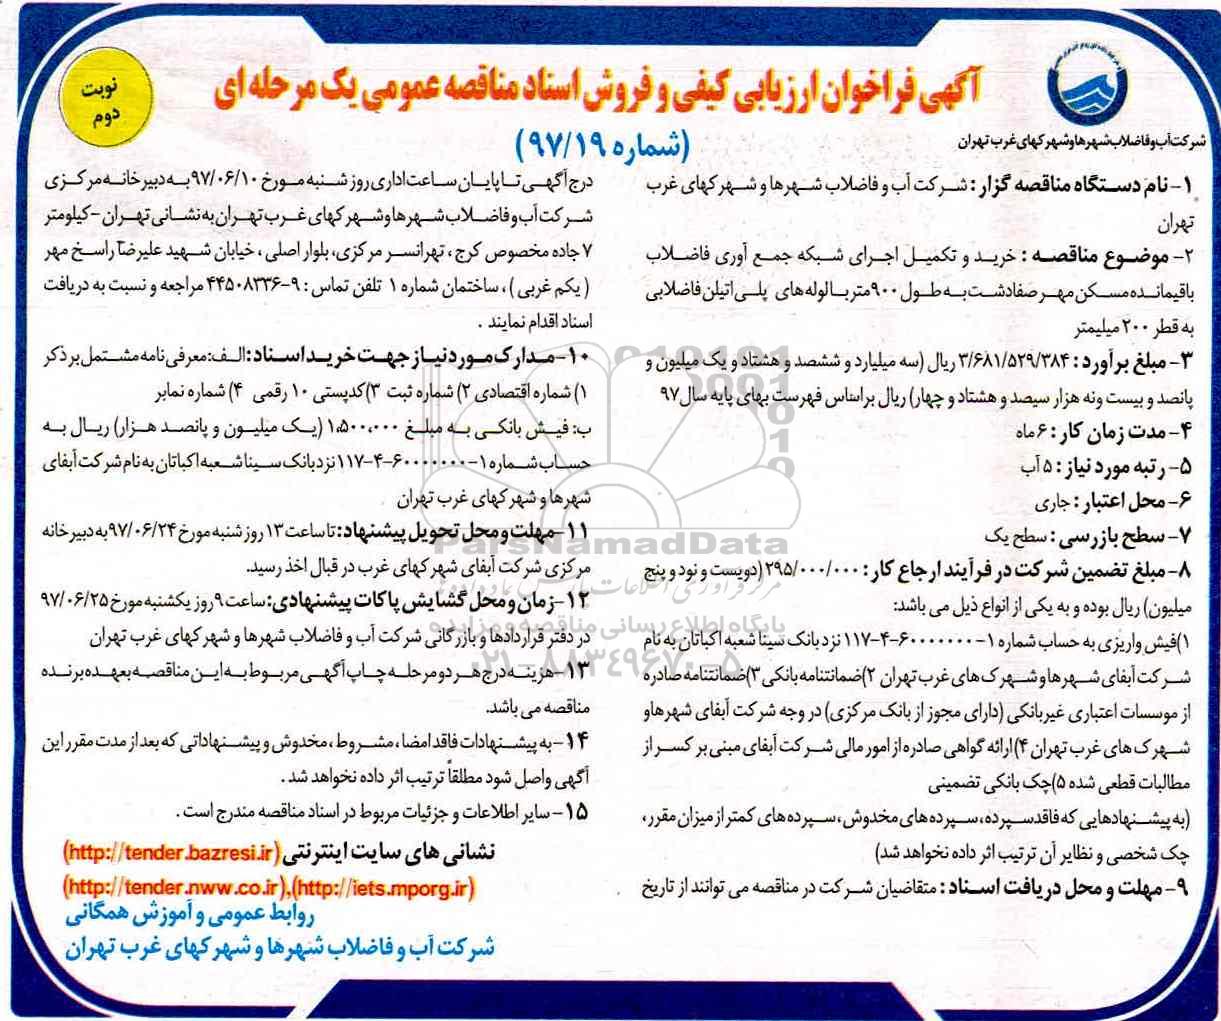 آگهی فراخوان ارزیابی کیفی و فروش اسناد مناقصه عمومی یک مرحله ای
(شماره ۹۷/۱۹)
نوبت
دوم
شرکت آب و فاضلاب شهرها و شهرکهای غرب تهران
۱- نام دستگاه مناقصه گزار : شرکت آب و فاضلاب شهرها و شهرکهای غرب
تهران
۲- موضوع مناقصه : خرید و تکمیل اجرای شبکه جمع آوری فاضلاب
باقیمانده مسکن مهر صفادشت به طول ۹۰۰ متر با لوله های پلی اتیلن فاضلابی
به قطر ۲۰۰ میلیمتر
۳- مبلغ برآورد : ۳/۶۸۱/۵۲۹/۳۸۴ ریال (سه میلیارد و ششصد و هشتاد و یک میلیون و
پانصد و بیست ونه هزار سیصد و هشتاد و چهار) ریال براساس فهرست بهای پایه سال ۹۷
۴- مدت زمان کار : ۶ ماه
۵- رتبه مورد نیاز : ۵ آب
۶- محل اعتبار : جاری
۷- سطح بازرسی : سطح یک
۸- مبلغ تضمین شرکت در فرآیند ارجاع کار : ۲۹۵/۰۰۰/۰۰۰ (دویست و نود و پنج
میلیون) ریال بوده و به یکی از انواع ذیل می باشد:
۱)فیش واریزی به حساب شماره ۱-۶۰۰۰۰۰۰۰-۴-۱۱۷ نزد بانک سینا شعبه اکباتان به نام
شرکت آبفای شهرها و شهرک های غرب تهران ۲)ضمانتنامه بانکی ۳)ضمانتنامه صادره
از موسسات اعتباری غیربانکی (دارای مجوز از بانک مرکزی) در وجه شرکت آبفای شهرها و
شهرک های غرب تهران ۴)ارائه گواهی صادره از امور مالی شرکت آبفای مبنی بر کسر از
مطالبات قطعی شده ۵)چک بانکی تضمینی
(به پیشنهادهایی که فاقد سپرده، سپرده های مخدوش، سپرده های کمتر از میزان مقرر،
چک شخصی و نظایر آن ترتیب اثر داده نخواهد شد)
۹- مهلت و محل دریافت اسناد : متقاضیان شرکت در مناقصه می توانند از تاریخ
درج آگهی تا پایان ساعت اداری روز شنبه مورخ ۹۷/۰۶/۱۰ به دبیرخانه مرکزی
شرکت آب و فاضلاب شهرها و شهرکهای غرب تهران به نشانی تهران - کیلومتر
۷ جاده مخصوص کرج ، تهرانسر مرکزی، بلوار اصلی ، خیابان شهید علیرضا راسخ مهر
( یکم غربی ) ، ساختمان شماره ۱ تلفن تماس : ۹-۴۴۵۰۸۳۳۶ مراجعه و نسبت به دریافت
اسناد اقدام نمایند .
۱۰- مدارک مورد نیاز جهت خرید اسناد: الف: معرفی نامه مشتمل بر ذکر
۱) شماره اقتصادی ۲) شماره ثبت ۳)کدپستی ۱۰ رقمی ۴) شماره نمابر
ب: فیش بانکی به مبلغ ۱،۵۰۰،۰۰۰ (یک میلیون و پانصد هزار) ریال به
حساب شماره ۱-۶۰۰۰۰۰۰۰-۴-۱۱۷ نزد بانک سینا شعبه اکباتان به نام شرکت آبفای
شهرها و شهرکهای غرب تهران
۱۱- مهلت و محل تحویل پیشنهاد: تا ساعت ۱۳ روز شنبه مورخ ۹۷/۰۶/۲۴ به دبیرخانه
مرکزی شرکت آبفای شهرکهای غرب در قبال اخذ رسید.
۱۲- زمان و محل گشایش پاکات پیشنهادی: ساعت ۹ روز یکشنبه مورخ ۹۷/۰۶/۲۵
در دفتر قراردادها و بازرگانی شرکت آب و فاضلاب شهرها و شهرکهای غرب تهران
۱۳- هزینه درج هر دو مرحله چاپ آگهی مربوط به این مناقصه بعهده برنده
مناقصه می باشد.
۱۴- به پیشنهادات فاقد امضا ، مشروط ، مخدوش و پیشنهاداتی که بعد از مدت مقرر این
آگهی واصل شود مطلقاً ترتیب اثر داده نخواهد شد .
۱۵- سایر اطلاعات و جزئیات مربوط در اسناد مناقصه مندرج است .
نشانی های سایت اینترنتی (http://tender.bazresi.ir)
(http://tender.nww.co.ir),(http://iets.mporg.ir)
روابط عمومی و آموزش همگانی
شرکت آب و فاضلاب شهرها و شهرکهای غرب تهران
ParsNamadData
پایگاه اطلاع رسانی مناقصه و مزایده
۰۲۱-۸۸۳۴۹۶۷۰-۵